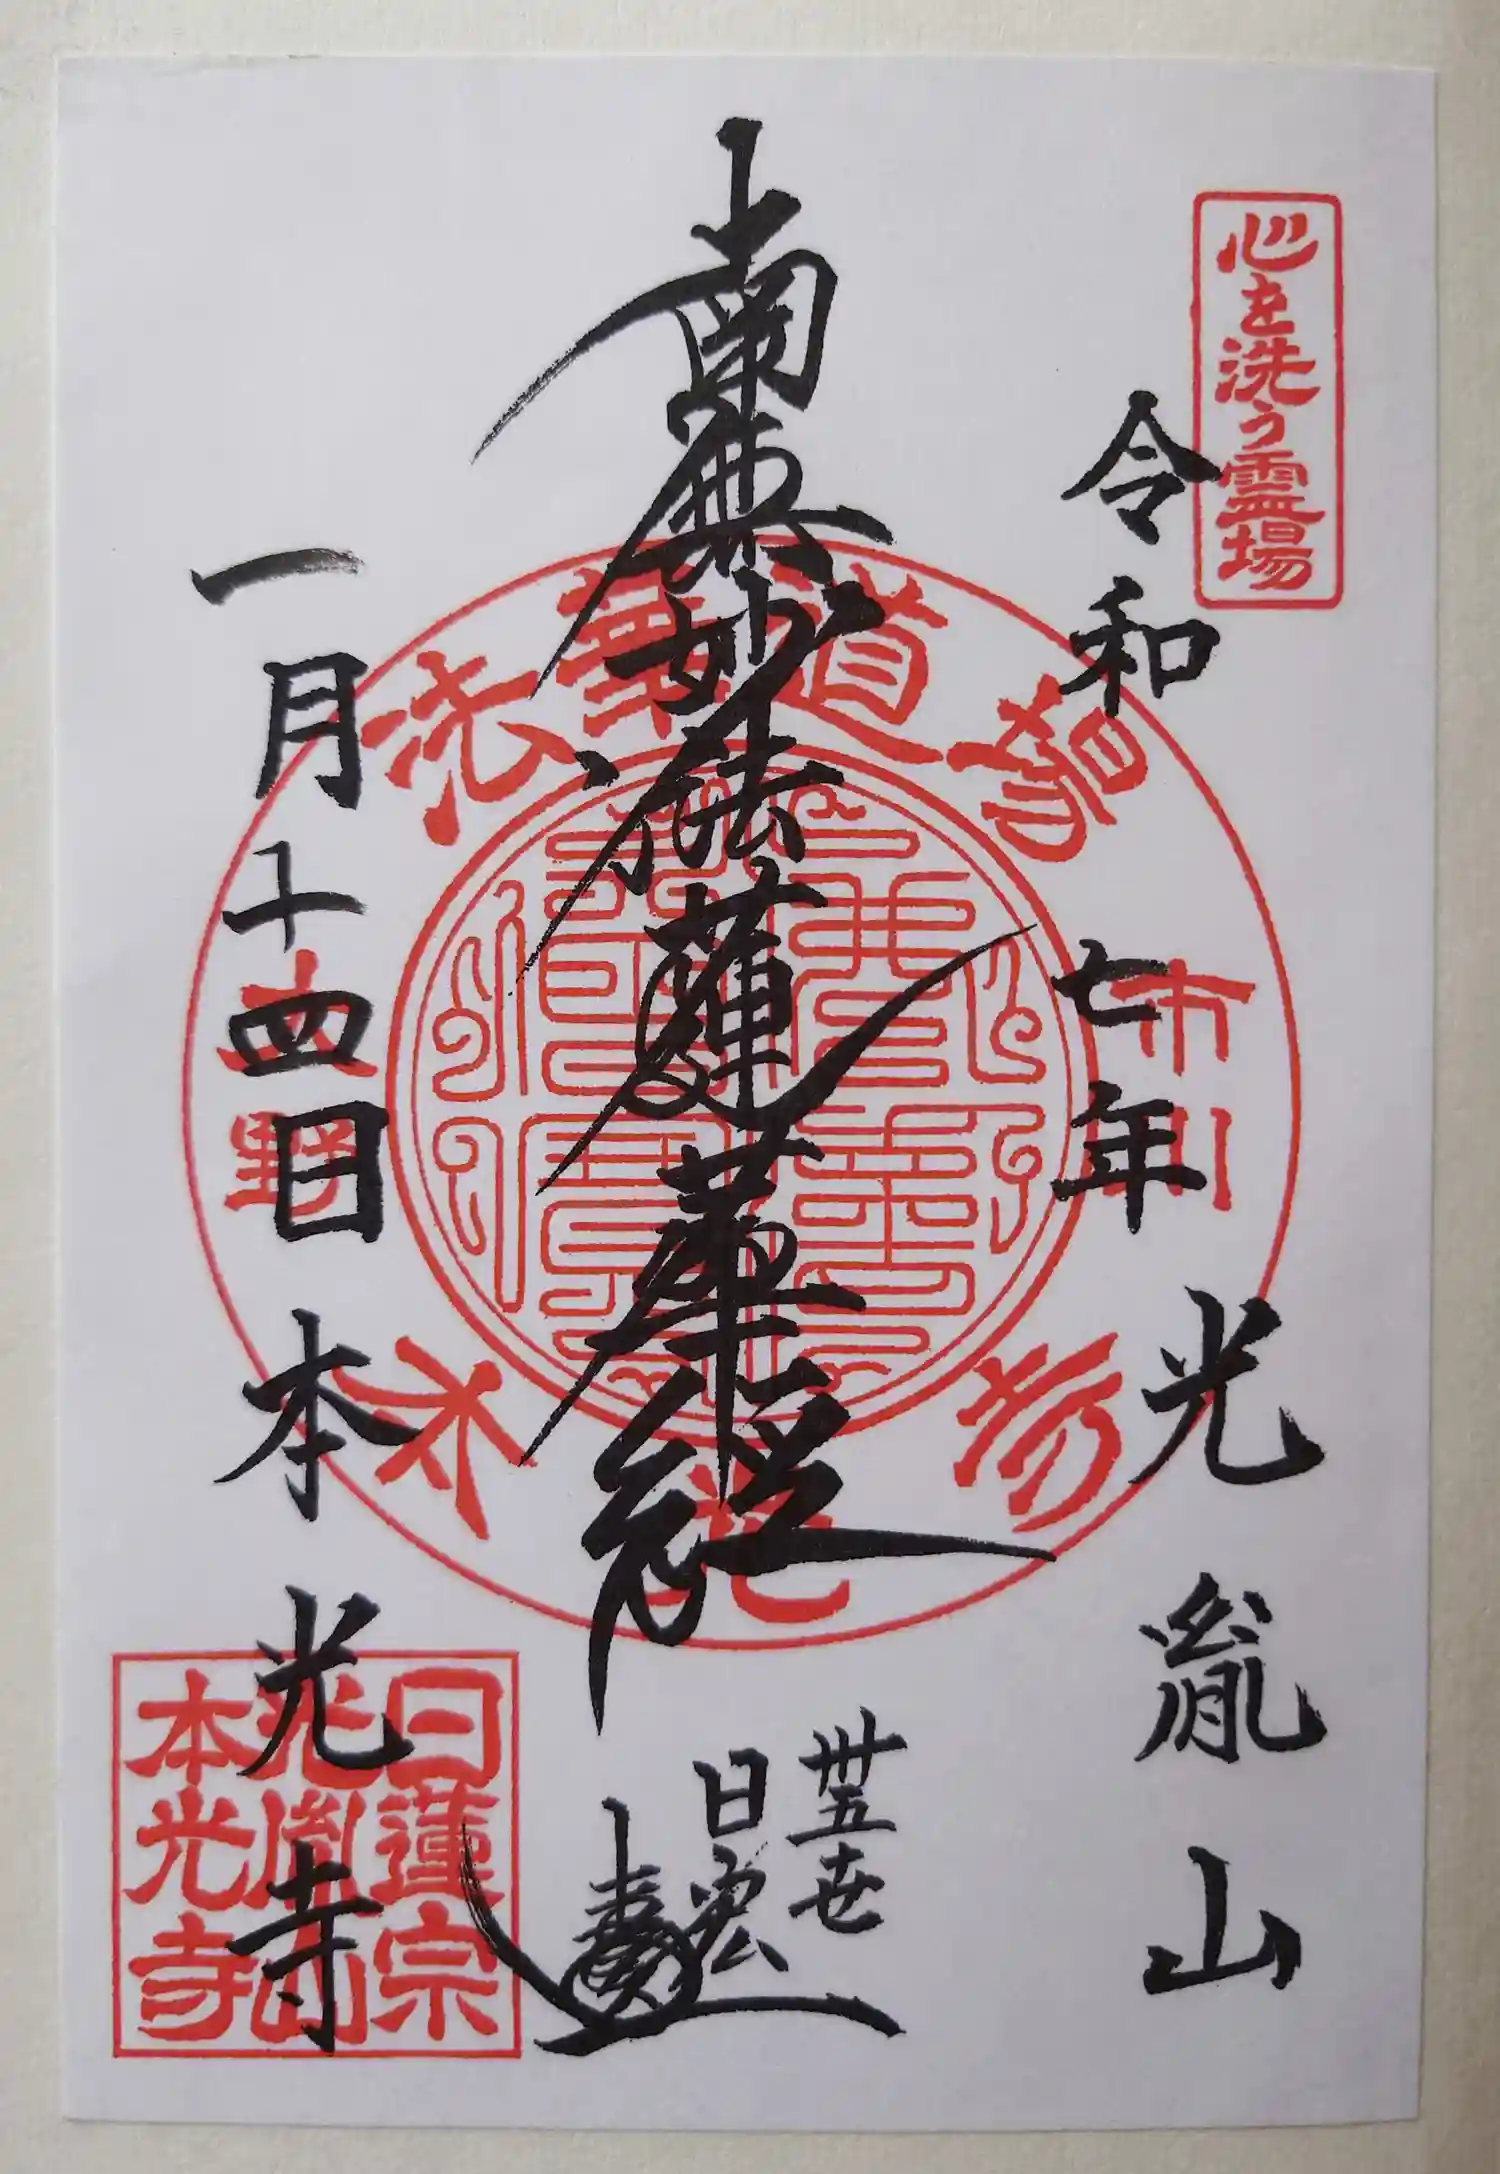 心を洗う霊場
令和七年
光胤山
南無妙法蓮華経
卅五世
日宏
一月十四日
本光寺
法華道場
市川
大野
日蓮宗
光胤山
本光寺